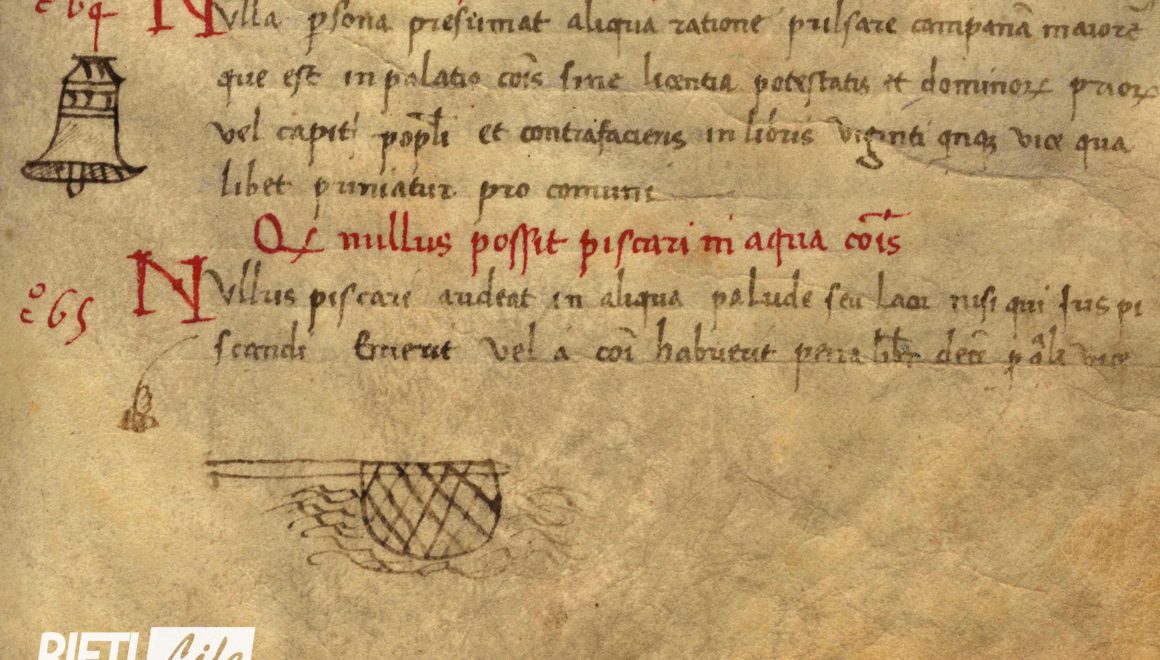 Nulla psona presumat aliqua ratione pulsare campanā maiorē
que est in palatio cois sine licentia potestatis et dominoꝝ prioꝝ
vel capiti popli et contrafaciens in libris viginti qnqꝫ vice qua
libet puniatur pro comuni
Qꝫ nullus possit piscari in aqua cois
cº 65
Nullus piscari audeat in aliqua palude seu lacu nisi qui ius pi
scandi Emerit vel a coi habuerit pena libr decē
RIETI Life